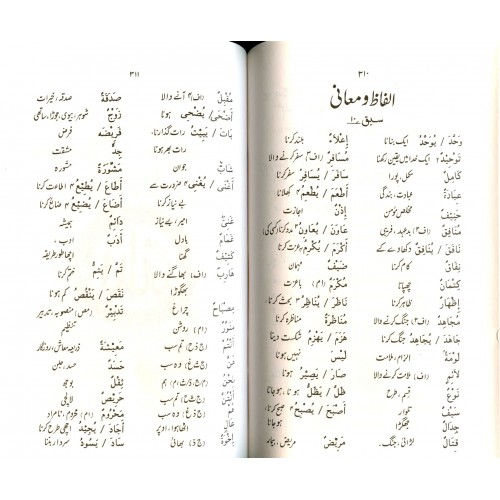 ۳۱۰
الفاظ و معانی
سبق ۱۰
وَحَّدَ / يُوَحِّدُ ایک بنانا
تَوْحِيْدٌ ایک خدا میں یقین رکھنا
كَامِلٌ مکمل، پورا
عِبَادَةٌ عبادت، بندگی
حَنِيْفٌ مخلص مؤمن
مُنَافِقٌ (اف ۳) بدعہد، فریبی
نَافَقَ / يُنَافِقُ دکھاوے کے
نِفَاقٌ کام کرنا
كِتْمَانٌ چھپانا
إِظْهَارٌ ظاہر کرنا
مُجَاهِدٌ (اف ۳) جنگ کرنے والا
جَاهَدَ / يُجَاهِدُ جنگ کرنا
لَوْمَةٌ الزام، ملامت
لَائِمٌ (اف) ملامت کرنے والا
نَوْعٌ قسم، طرح
سَيْفٌ تلوار
جِدَالٌ جھگڑا
قِتَالٌ لڑائی، جنگ
إِعْلَاءٌ بلند کرنا
مُسَافِرٌ (اف ۳) سفر کرنے والا
سَافَرَ / يُسَافِرُ سفر کرنا
أَطْعَمَ / يُطْعِمُ ۴ کھلانا
إِذْنٌ اجازت
عَاوَنَ / يُعَاوِنُ ۳ مدد کرنا
أَكْرَمَ / يُكْرِمُ ۴ باعزت کرنا
ضَيْفٌ مہمان
مُكَرَّمٌ (ام) باعزت
نَاظَرَ / يُنَاظِرُ ۳ بحث کرنا
مُنَاظَرَةٌ مناظرہ کرنا
هَزَمَ / يَهْزِمُ شکست دینا
لَيْسَ نہیں ہونا
صَارَ / يَصِيْرُ ہونا
ظَلَّ / يَظَلُّ ہونا، ہوجانا
أَصْبَحَ / يُصْبِحُ ۴ ہوجانا
مَرِيْضٌ مریض، بیمار
۳۱۱
مُقْبِلٌ (اف ۴) آنے والا
أَضْحَى / يُضْحِي ہونا
بَاتَ / يَبِيْتُ رات گذارنا،
رات بھر ہونا
شَابٌّ جوان
أَغْنَى / يُغْنِي ۴ ضرورت سے
بے نیاز کرنا
غَنِيٌّ امیر، بے نیاز
غَمَامٌ بادل
كَثِيْفٌ گھنا
هَارِبٌ (اف) بھاگنے والا
بھگوڑا
مِصْبَاحٌ چراغ
مُنَوَّرٌ (ام) روشن
إِخْوَةٌ (ج ذ) بھائی
صَدَقَةٌ صدقہ، خیرات
زَوْجٌ شوہر، بیوی، جوڑا، ساتھی
فَرِيْضَه فرض
جِدٌّ مشقت
مَشْوَرَةٌ مشورہ
أَطَاعَ / يُطِيْعُ ۴ اطاعت کرنا
أَضَاعَ / يُضِيْعُ ۴ ضائع کرنا
دَائِمٌ ہمیشہ
أَدَبٌ ادب،
اچھا طور طریقہ
تَمَّ / يَتِمُّ ختم کرنا
نَقَصَ / يَنْقُصُ کم ہونا
تَدْبِيْرٌ (مص) منصوبہ، تدبیر
تنظیم
مَعِيْشَةٌ ذریعہ معاش، روزگار
حَسَدٌ حسد، جلن
ثِقْلٌ بوجھ
حَرِيْصٌ لالچی
مَحْرُوْمٌ (ام) محروم، نامراد
أَجَادَ / يُجِيْدُ اچھی طرح کرنا
سَادَ / يَسُوْدُ سردار بننا